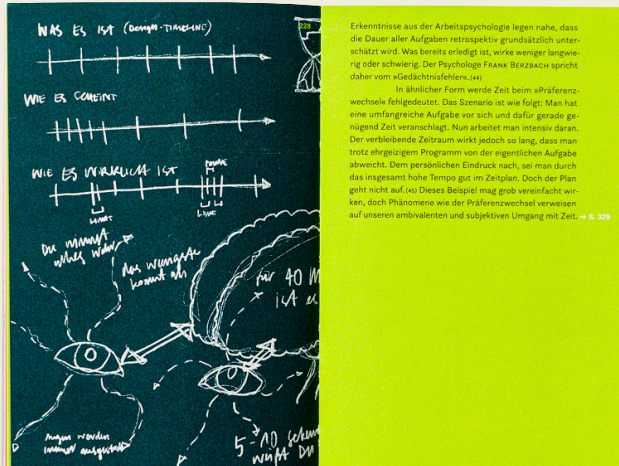 WAS ES IST (DESIGN-TIMELINE)
WIE ES SCHEINT
WIE ES WIRKLICH IST
Du nimmst
alles wahr
das wenigste
kommt an
für 40 M
ist e
Augen werden
immer
5-10 Sekun
weißt Du
228
Erkenntnisse aus der Arbeitspsychologie legen nahe, dass
die Dauer aller Aufgaben retrospektiv grundsätzlich unter-
schätzt wird. Was bereits erledigt ist, wirke weniger langwie-
rig oder schwierig. Der Psychologe FRANK BERZBACH spricht
daher vom »Gedächtnisfehler«.(44)
In ähnlicher Form werde Zeit beim »Präferenz-
wechsel« fehlgedeutet. Das Szenario ist wie folgt: Man hat
eine umfangreiche Aufgabe vor sich und dafür gerade ge-
nügend Zeit veranschlagt. Nun arbeitet man intensiv daran.
Der verbleibende Zeitraum wirkt jedoch so lang, dass man
trotz ehrgeizigem Programm von der eigentlichen Aufgabe
abweicht. Dem persönlichen Eindruck nach, sei man durch
das insgesamt hohe Tempo gut im Zeitplan. Doch der Plan
geht nicht auf.(45) Dieses Beispiel mag grob vereinfacht wir-
ken, doch Phänomene wie der Präferenzwechsel verweisen
auf unseren ambivalenten und subjektiven Umgang mit Zeit. → S. 329